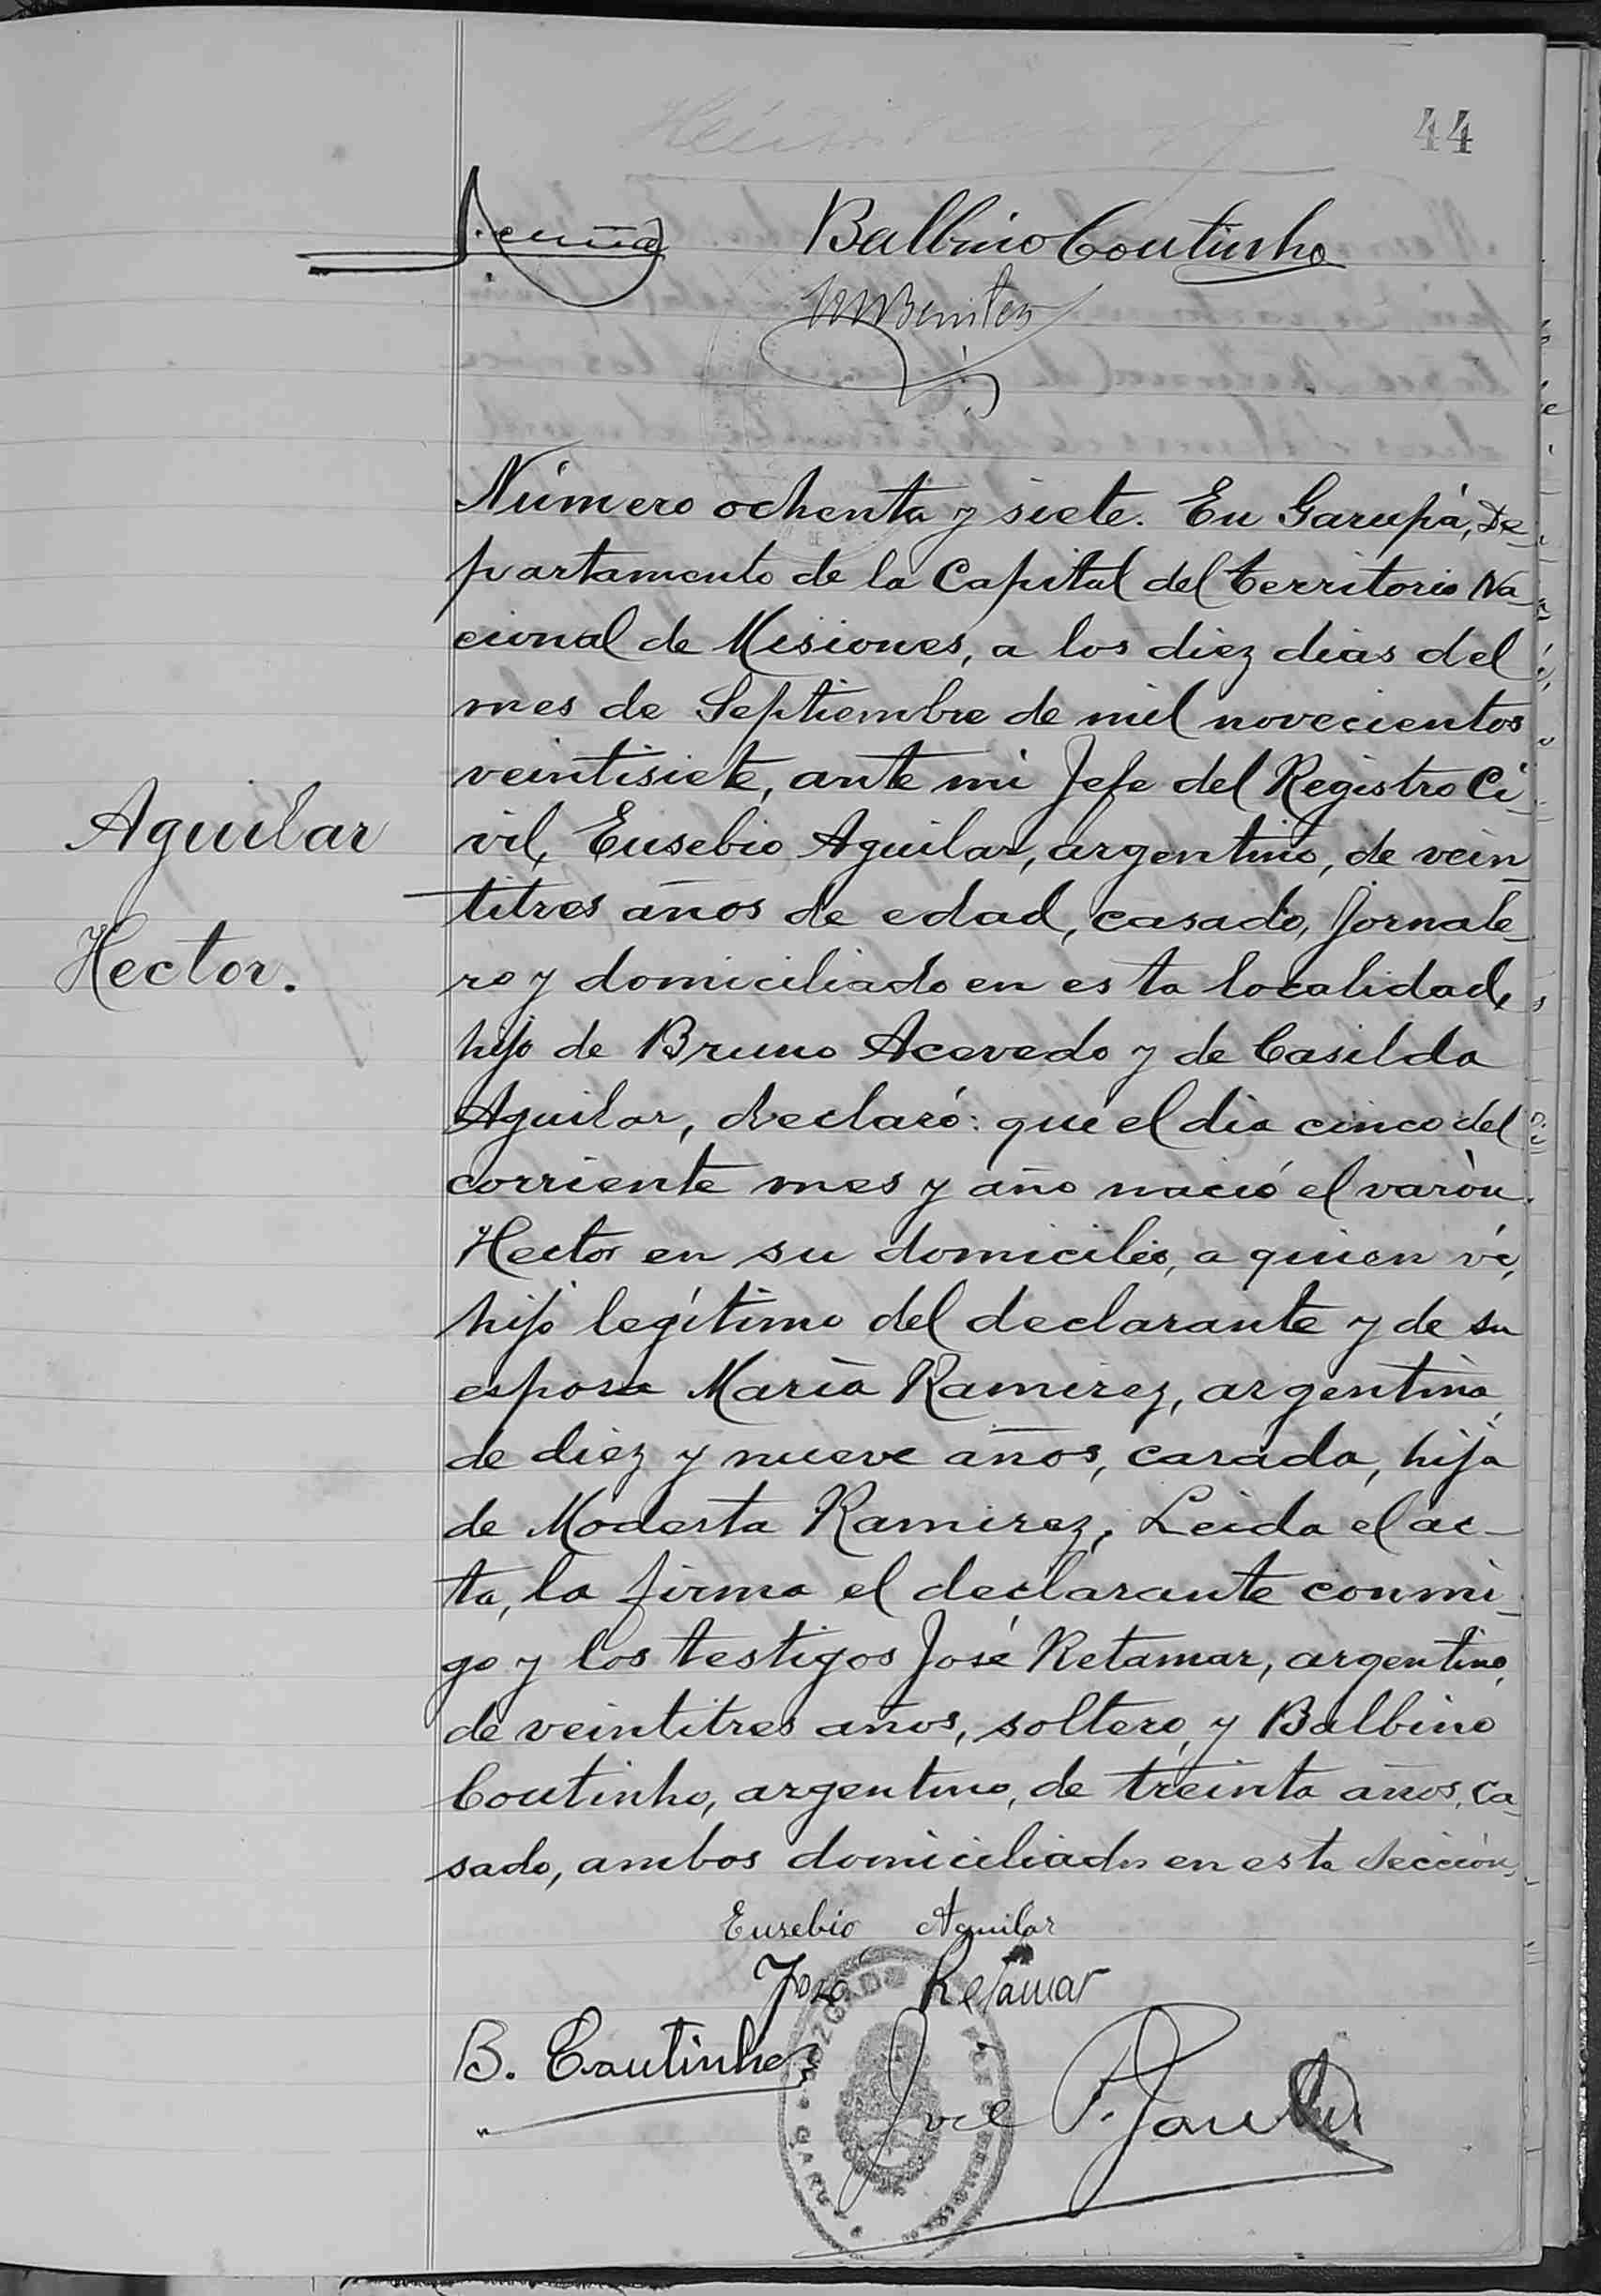 44
Balbino Coutinho
Benitez
Número ochenta y siete. En Garupá, De-
partamento de la Capital del territorio Na-
cional de Misiones, a los diez dias del
mes de Septiembre de mil novecientos
veintisiete, ante mi Jefe del Registro Ci-
vil, Eusebio Aguilar, argentino, de vein-
titres años de edad, casado, jornale-
ro y domiciliado en esta localidad,
hijo de Bruno Acevedo y de Casilda
Aguilar, declaró: que el dia cinco del
corriente mes y año nació el varón
Hector en su domicilio, a quien vé,
hijo legítimo del declarante y de su
esposa María Ramirez, argentina,
de diez y nueve años, casada, hija
de Modesta Ramirez. Leida el ac-
ta, la firma el declarante conmi-
go y los testigos José Retamar, argentino,
de veintitres años, soltero, y Balbino
Coutinho, argentino, de treinta años, ca-
sado, ambos domiciliados en esta sección.
Aguilar
Hector.
Eusebio Aguilar
José Retamar
B. Coutinho
José P.
JUZGADO DE PAZ
GARUPÁ